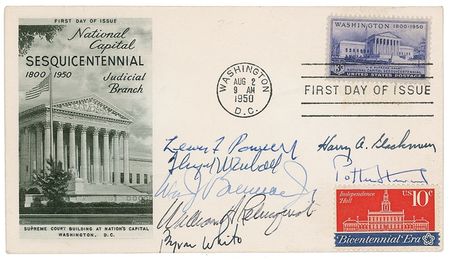 FIRST DAY OF ISSUE
National
Capital
SESQUICENTENNIAL
1800 1950
Judicial
Branch
SUPREME COURT BUILDING AT NATION'S CAPITAL
WASHINGTON, D. C.
WASHINGTON
AUG 2
9 AM
1950
D.C.
WASHINGTON 1800-1950
3¢
UNITED STATES POSTAGE
FIRST DAY OF ISSUE
Lewis F Powell
Harry A. Blackmun
Thurgood Marshall
Potter Stewart
Wm J Brennan Jr
William H Rehnquist
Byron White
Independence
Hall
US 10c
Bicentennial Era